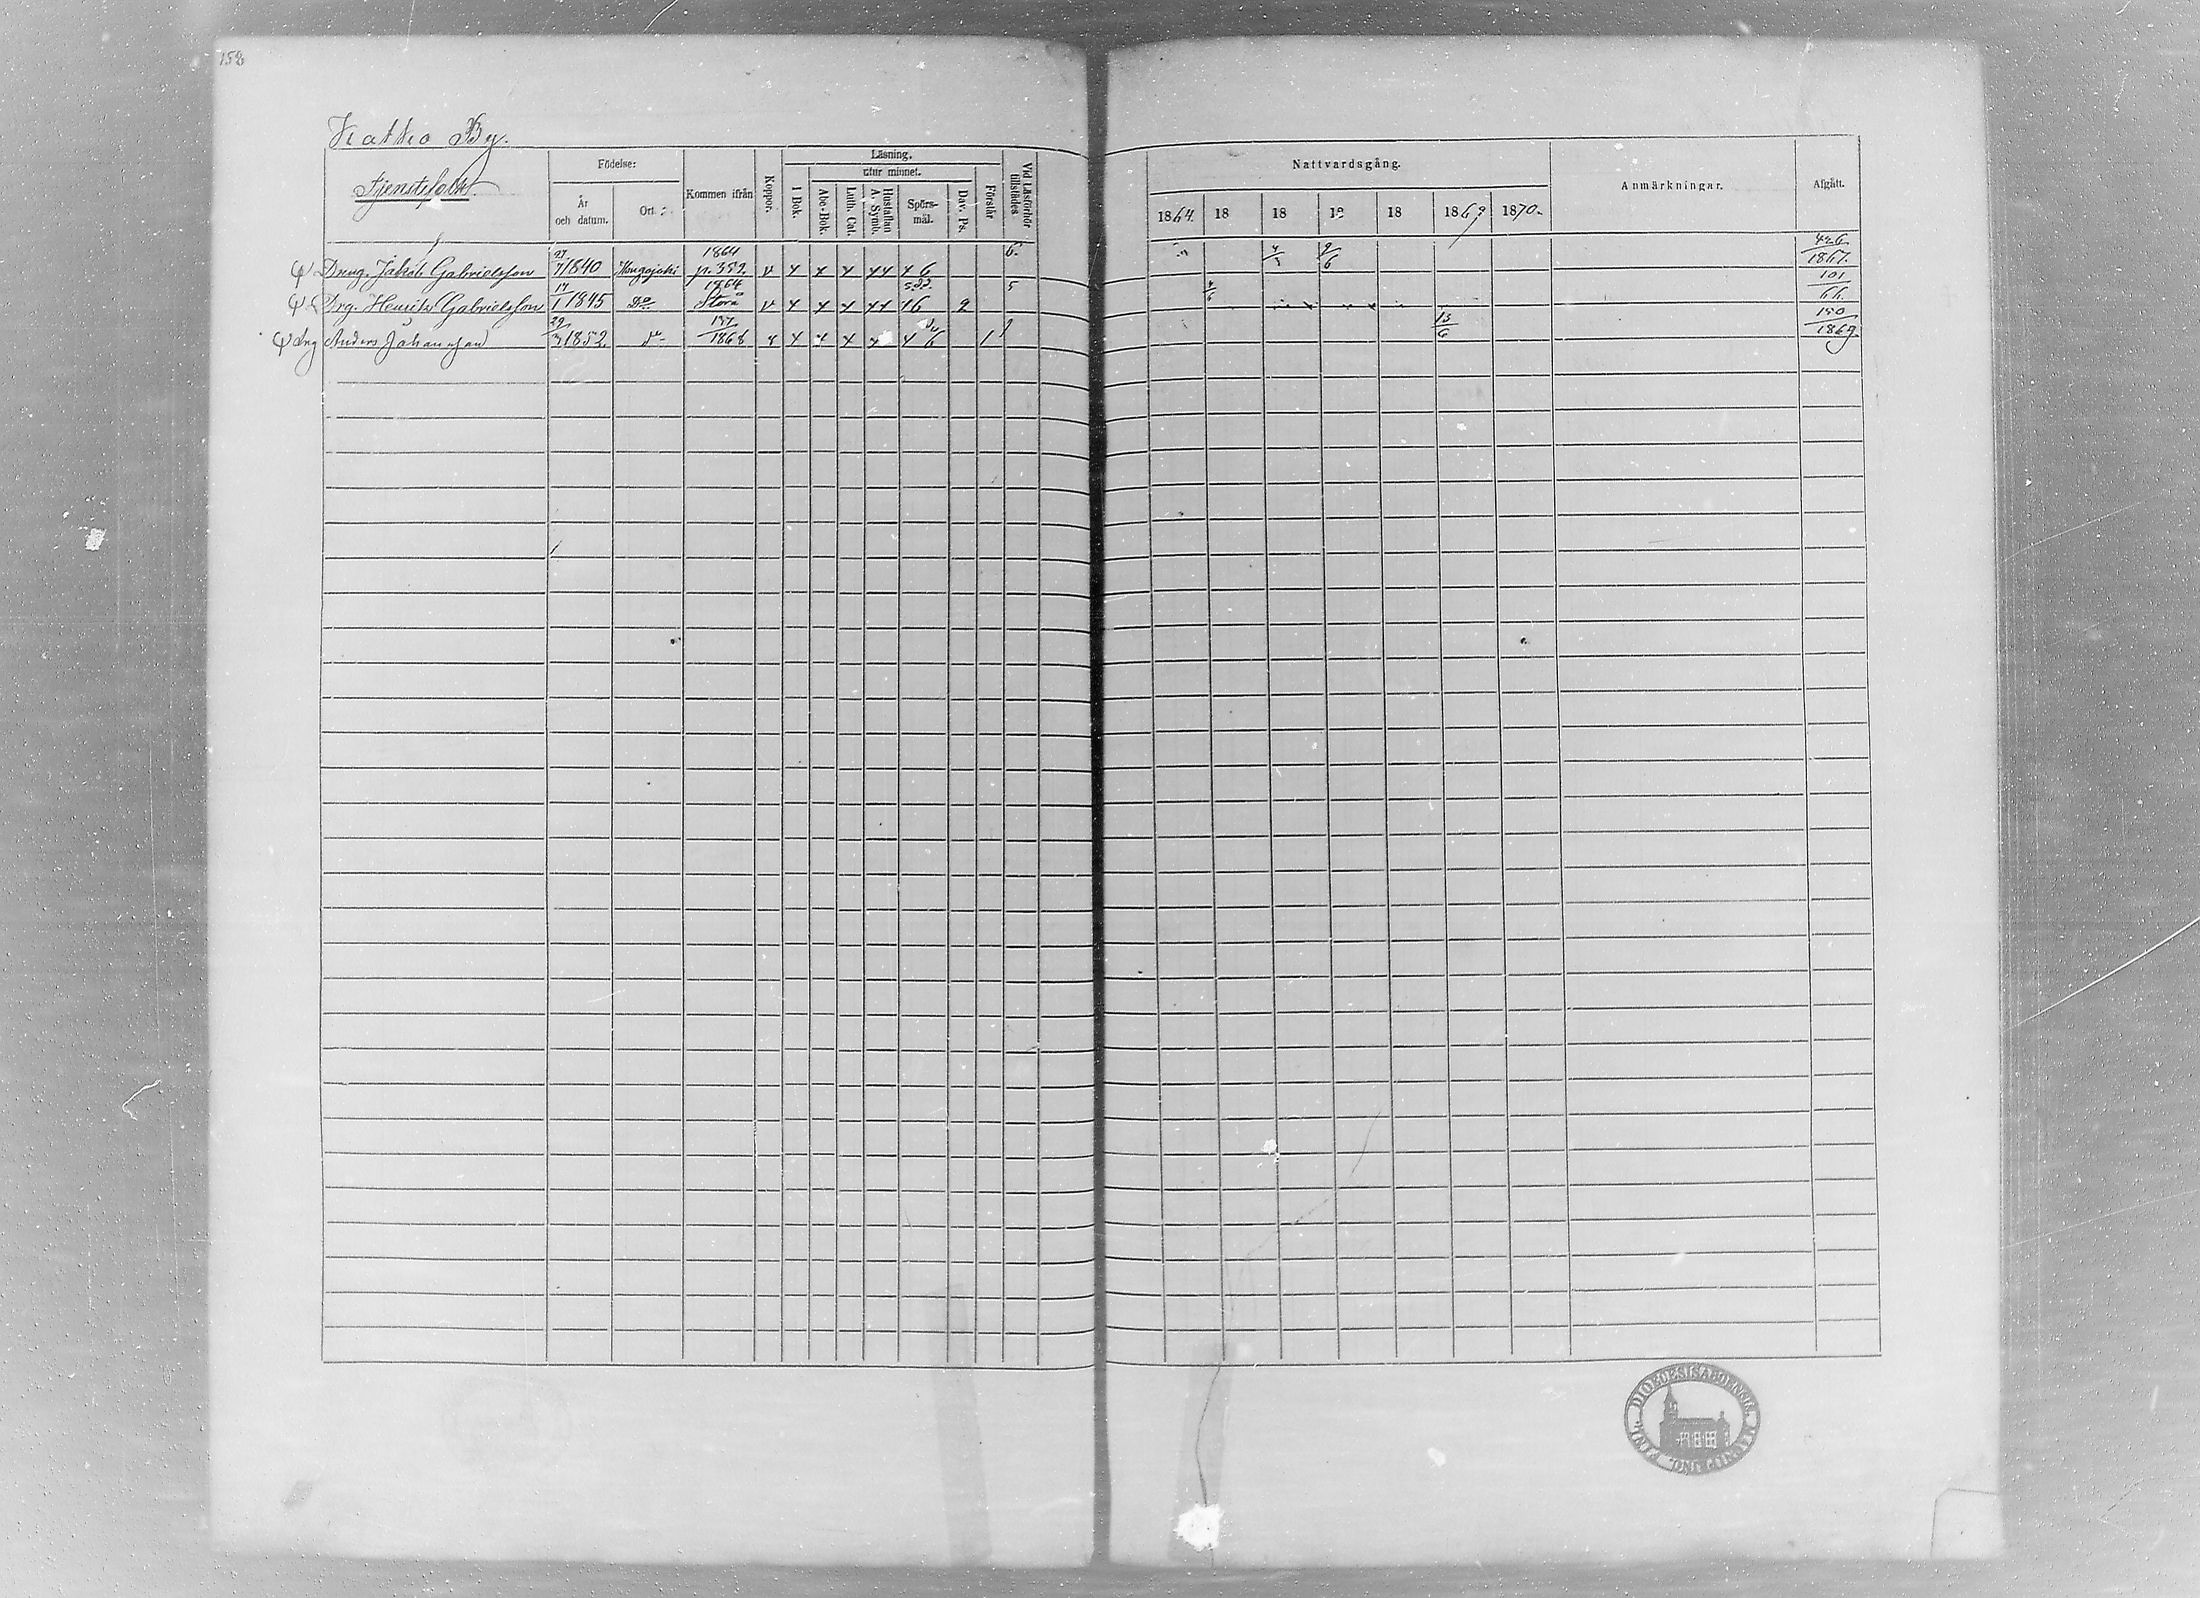 158
By.
Tjenstefolk
Födelse:
År och datum.
Ort
Kommen ifrån
Koppor.
Läsning.
I Bok.
utur minnet.
Abc-Bok.
Luth. Cat.
Hustaflan A. Symb.
Spörs-mål.
Dav. Ps.
Förstår
Vid Läsförhör tillstädes
Nattvardsgång.
1864. 18 18 18 18 1869 1870.
Anmärkningar.
Afgått.
Dreng. Jakob Gabrielsson 27/7 1840 1864 p. 352. v x x x x x x 6 6. 9/6 426/1867.
Drg. Henrik Gabrielsson 14/1 1845 Do 1864 Storå v x x x x x x 6 2 5 4/6 101/66.
Drg Anders Johansson 29/3 1852. do 1868 x x x x x 6 1 13/6 150/1869